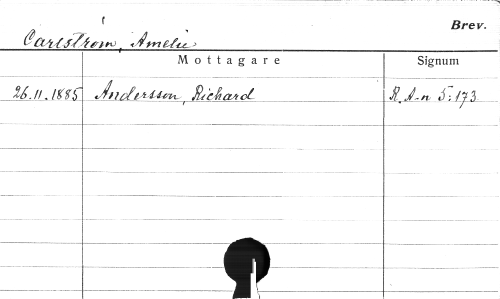 Brev.
Carlström, Amelie
Mottagare Signum
26.11.1885 Andersson, Richard R.A-n 5:173